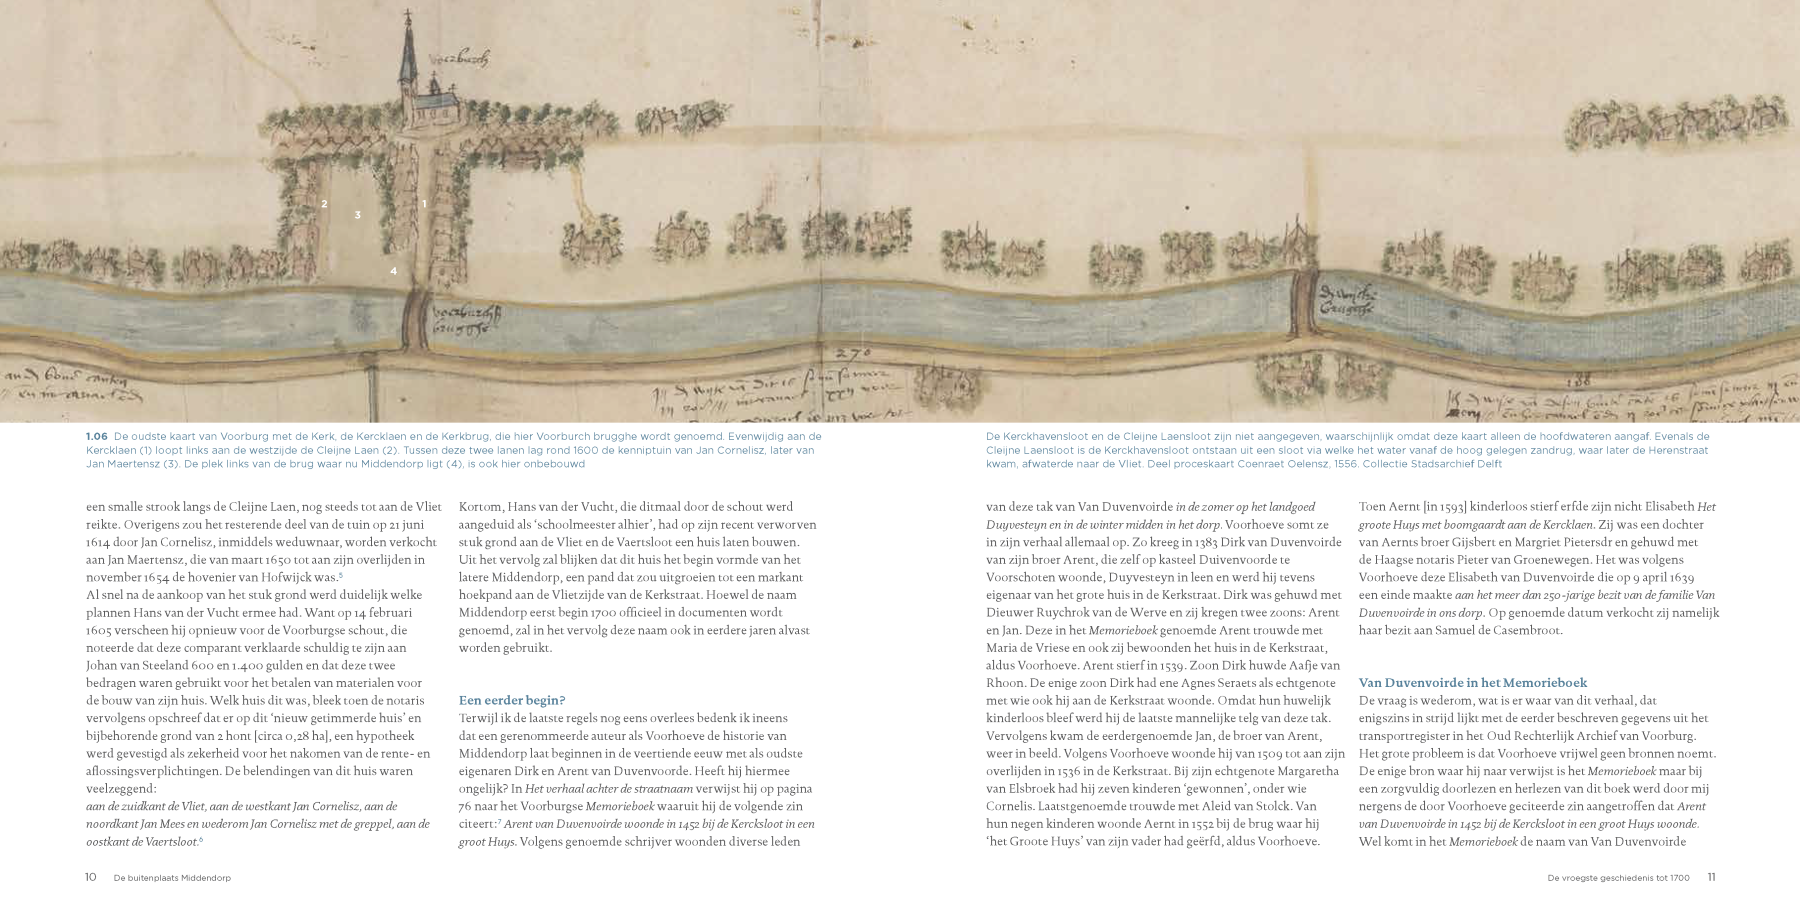 Voerburch
2
3
1
4
voerburch
brugghe
d wyche
brugghe
270
188
1.06 De oudste kaart van Voorburg met de Kerk, de Kercklaen en de Kerkbrug, die hier Voorburch brugghe wordt genoemd. Evenwijdig aan de
Kercklaen (1) loopt links aan de westzijde de Cleijne Laen (2). Tussen deze twee lanen lag rond 1600 de kenniptuin van Jan Cornelisz, later van
Jan Maertensz (3). De plek links van de brug waar nu Middendorp ligt (4), is ook hier onbebouwd
De Kerckhavensloot en de Cleijne Laensloot zijn niet aangegeven, waarschijnlijk omdat deze kaart alleen de hoofdwateren aangaf. Evenals de
Cleijne Laensloot is de Kerckhavensloot ontstaan uit een sloot via welke het water vanaf de hoog gelegen zandrug, waar later de Herenstraat
kwam, afwaterde naar de Vliet. Deel proceskaart Coenraet Oelensz, 1556. Collectie Stadsarchief Delft
een smalle strook langs de Cleijne Laen, nog steeds tot aan de Vliet
reikte. Overigens zou het resterende deel van de tuin op 21 juni
1614 door Jan Cornelisz, inmiddels weduwnaar, worden verkocht
aan Jan Maertensz, die van maart 1650 tot aan zijn overlijden in
november 1654 de hovenier van Hofwijck was.5
Al snel na de aankoop van het stuk grond werd duidelijk welke
plannen Hans van der Vucht ermee had. Want op 14 februari
1605 verscheen hij opnieuw voor de Voorburgse schout, die
noteerde dat deze comparant verklaarde schuldig te zijn aan
Johan van Steeland 600 en 1.400 gulden en dat deze twee
bedragen waren gebruikt voor het betalen van materialen voor
de bouw van zijn huis. Welk huis dit was, bleek toen de notaris
vervolgens opschreef dat er op dit ‘nieuw getimmerde huis’ en
bijbehorende grond van 2 hont [circa 0,28 ha], een hypotheek
werd gevestigd als zekerheid voor het nakomen van de rente- en
aflossingsverplichtingen. De belendingen van dit huis waren
veelzeggend:
aan de zuidkant de Vliet, aan de westkant Jan Cornelisz, aan de
noordkant Jan Mees en wederom Jan Cornelisz met de greppel, aan de
oostkant de Vaertsloot.6
Kortom, Hans van der Vucht, die ditmaal door de schout werd
aangeduid als ‘schoolmeester alhier’, had op zijn recent verworven
stuk grond aan de Vliet en de Vaertsloot een huis laten bouwen.
Uit het vervolg zal blijken dat dit huis het begin vormde van het
latere Middendorp, een pand dat zou uitgroeien tot een markant
hoekpand aan de Vlietzijde van de Kerkstraat. Hoewel de naam
Middendorp eerst begin 1700 officieel in documenten wordt
genoemd, zal in het vervolg deze naam ook in eerdere jaren alvast
worden gebruikt.
Een eerder begin?
Terwijl ik de laatste regels nog eens overlees bedenk ik ineens
dat een gerenommeerde auteur als Voorhoeve de historie van
Middendorp laat beginnen in de veertiende eeuw met als oudste
eigenaren Dirk en Arent van Duvenvoorde. Heeft hij hiermee
ongelijk? In Het verhaal achter de straatnaam verwijst hij op pagina
76 naar het Voorburgse Memorieboek waaruit hij de volgende zin
citeert:7 Arent van Duvenvoirde woonde in 1452 bij de Kercksloot in een
groot Huys. Volgens genoemde schrijver woonden diverse leden
van deze tak van Van Duvenvoirde in de zomer op het landgoed
Duyvesteyn en in de winter midden in het dorp. Voorhoeve somt ze
in zijn verhaal allemaal op. Zo kreeg in 1383 Dirk van Duvenvoirde
van zijn broer Arent, die zelf op kasteel Duivenvoorde te
Voorschoten woonde, Duyvesteyn in leen en werd hij tevens
eigenaar van het grote huis in de Kerkstraat. Dirk was gehuwd met
Dieuwer Ruychrok van de Werve en zij kregen twee zoons: Arent
en Jan. Deze in het Memorieboek genoemde Arent trouwde met
Maria de Vriese en ook zij bewoonden het huis in de Kerkstraat,
aldus Voorhoeve. Arent stierf in 1539. Zoon Dirk huwde Aafje van
Rhoon. De enige zoon Dirk had ene Agnes Seraets als echtgenote
met wie ook hij aan de Kerkstraat woonde. Omdat hun huwelijk
kinderloos bleef werd hij de laatste mannelijke telg van deze tak.
Vervolgens kwam de eerdergenoemde Jan, de broer van Arent,
weer in beeld. Volgens Voorhoeve woonde hij van 1509 tot aan zijn
overlijden in 1536 in de Kerkstraat. Bij zijn echtgenote Margaretha
van Elsbroek had hij zeven kinderen ‘gewonnen’, onder wie
Cornelis. Laatstgenoemde trouwde met Aleid van Stolck. Van
hun negen kinderen woonde Aernt in 1552 bij de brug waar hij
‘het Groote Huys’ van zijn vader had geërfd, aldus Voorhoeve.
Toen Aernt [in 1593] kinderloos stierf erfde zijn nicht Elisabeth Het
groote Huys met boomgaardt aan de Kercklaen. Zij was een dochter
van Aernts broer Gijsbert en Margriet Pietersdr en gehuwd met
de Haagse notaris Pieter van Groenewegen. Het was volgens
Voorhoeve deze Elisabeth van Duvenvoirde die op 9 april 1639
een einde maakte aan het meer dan 250-jarige bezit van de familie Van
Duvenvoirde in ons dorp. Op genoemde datum verkocht zij namelijk
haar bezit aan Samuel de Casembroot.
Van Duvenvoirde in het Memorieboek
De vraag is wederom, wat is er waar van dit verhaal, dat
enigszins in strijd lijkt met de eerder beschreven gegevens uit het
transportregister in het Oud Rechterlijk Archief van Voorburg.
Het grote probleem is dat Voorhoeve vrijwel geen bronnen noemt.
De enige bron waar hij naar verwijst is het Memorieboek maar bij
een zorgvuldig doorlezen en herlezen van dit boek werd door mij
nergens de door Voorhoeve geciteerde zin aangetroffen dat Arent
van Duvenvoirde in 1452 bij de Kercksloot in een groot Huys woonde.
Wel komt in het Memorieboek de naam van Van Duvenvoirde
10 De buitenplaats Middendorp
De vroegste geschiedenis tot 1700 11